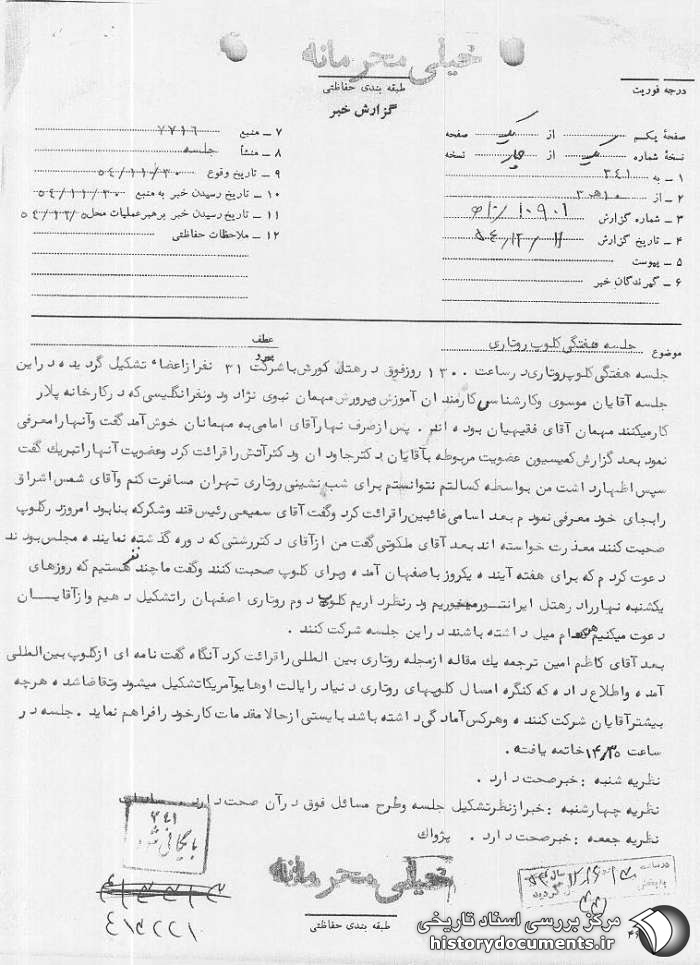 خیلی محرمانه
درجه فوریت
طبقه بندی حفاظتی
گزارش خبر
صفحهٔ یکم از یک صفحه
نسخهٔ شماره یک از چهار نسخه
۱ ـ به ۳۴۱
۲ ـ از ۱۰ه۳
۳ ـ شماره گزارش ۱۰۹۰۱
۴ ـ تاریخ گزارش ۵۴/۱۲/۱۱
۵ ـ پیوست
۶ ـ گیرندگان خبر
۷ ـ منبع ۷۷۱۶
۸ ـ منشأ جلسه
۹ ـ تاریخ وقوع ۵۴/۱۱/۳۰
۱۰ ـ تاریخ رسیدن خبر به منبع ۵۴/۱۱/۳۰
۱۱ ـ تاریخ رسیدن خبر برهبر عملیات محل ۵۴/۱۲/۵
۱۲ ـ ملاحظات حفاظتی
موضوع جلسه هفتگی کلوپ روتاری
عطف
پیرو
جلسه هفتگی کلوپ روتاری در ساعت ۱۳۰۰ روز فوق در هتل کورش با شرکت ۳۱ نفر از اعضاء تشکیل گردیده در این
جلسه آقایان موسوی و کارشناس کارمندان آموزش و پرورش مهمان نبوی نژاد و دو نفر انگلیسی که در کارخانه پلار
کار میکنند مهمان آقای فقیهیان بوده اند . پس از صرف نهار آقای امامی به مهمانان خوش آمد گفت و آنها را معرفی
نمود بعد گزارش کمیسیون عضویت مربوطه بآقایان دکتر جاودان و دکتر آتش را قرائت کرد و عضویت آنها را تبریک گفت
سپس اظهار داشت من بواسطه کسالتم نتوانستم برای شب نشینی روتاری تهران مسافرت کنم و آقای شمس اشراق
را بجای خود معرفی نمودم بعد اسامی غائبین را قرائت کرد و گفت آقای سمیعی رئیس قند و شکر که بنا بود امروز در کلوپ
صحبت کنند معذرت خواسته اند بعد آقای ملکوتی گفت من از آقای دکتر رشتی که دوره گذشته نماینده مجلس بودند
دعوت کردم که برای هفته آینده یکروز باصفهان آمده و برای کلوپ صحبت کنند و گفت ما چند نفر هستیم که روزهای
یکشنبه نهار را در هتل ایرانتور میخوریم و در نظر داریم کلوپ دوم روتاری اصفهان را تشکیل دهیم و از آقایان
دعوت میکنیم هرکدام میل داشته باشند در این جلسه شرکت کنند .
بعد آقای کاظم امین ترجمه یک مقاله از مجله روتاری بین المللی را قرائت کرد آنگاه گفت نامه ای از کلوپ بین المللی
آمده و اطلاع داده که کنگره امسال کلوپهای روتاری دنیا در ایالت اوهایو آمریکا تشکیل میشود و تقاضا شده هرچه
بیشتر آقایان شرکت کنند و هرکس آمادگی داشته باشد بایستی از حالا مقدمات کار خود را فراهم نماید . جلسه در
ساعت ۱۴/۳۵ خاتمه یافته .
نظریه شنبه : خبر صحت دارد .
نظریه چهارشنبه : خبر از نظر تشکیل جلسه و طرح مسائل فوق در آن صحت دارد .
نظریه جمعه : خبر صحت دارد . پژواک
۳۴۱
بایگانی شد
خیلی محرمانه
طبقه بندی حفاظتی
مرکز بررسی اسناد تاریخی
historydocuments.ir